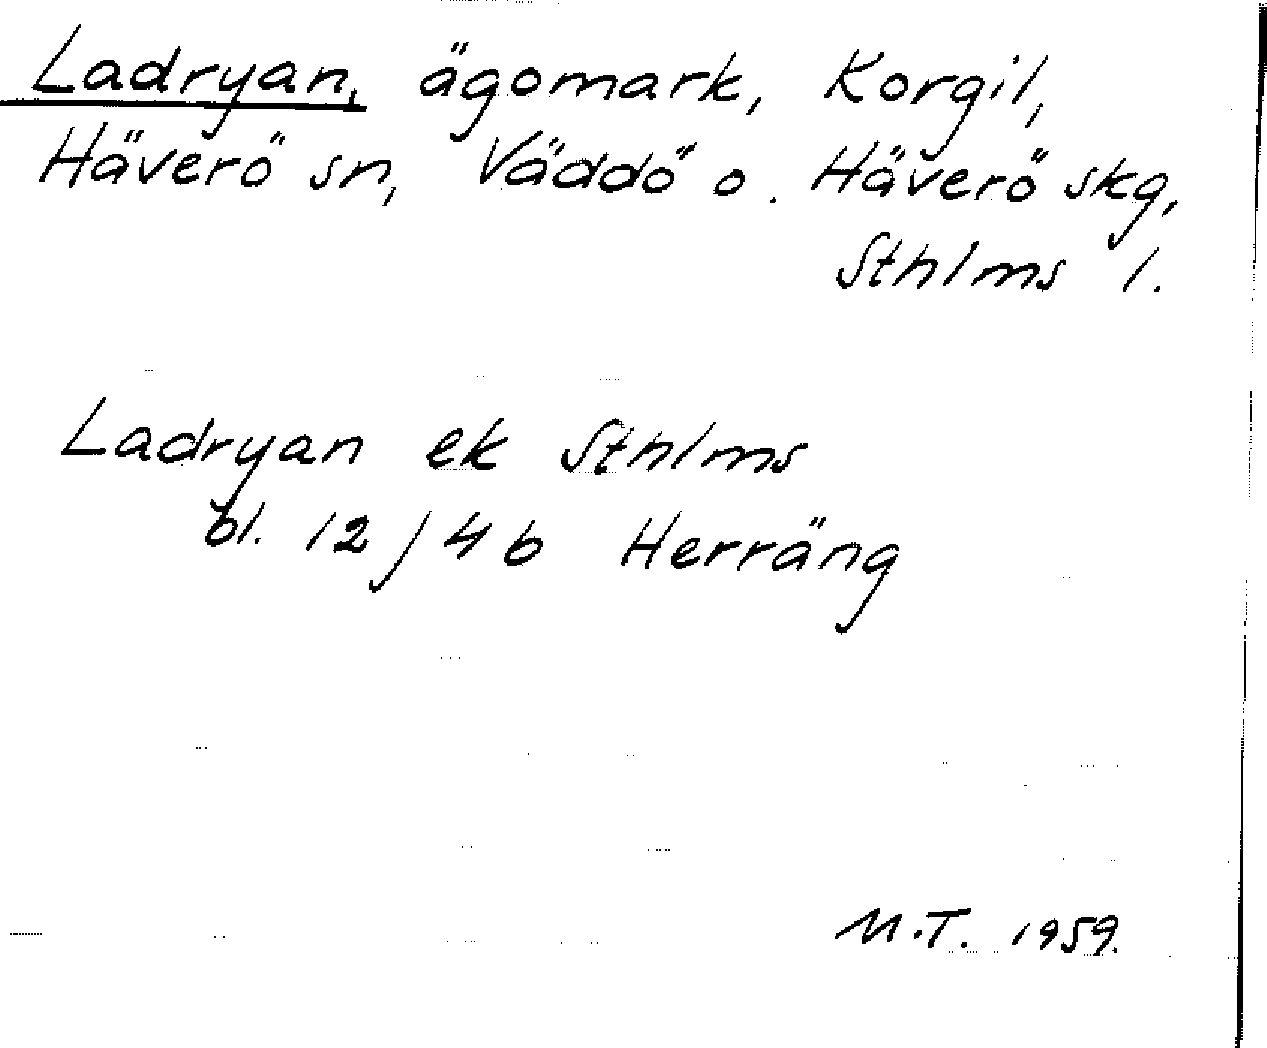 Ladryan, ägomark, Korgil,
Häverö sn, Väddö o. Häverö skg,
Sthlms l.
Ladryan ek Sthlms
bl. 12/4b Herräng
M.T. 1959.